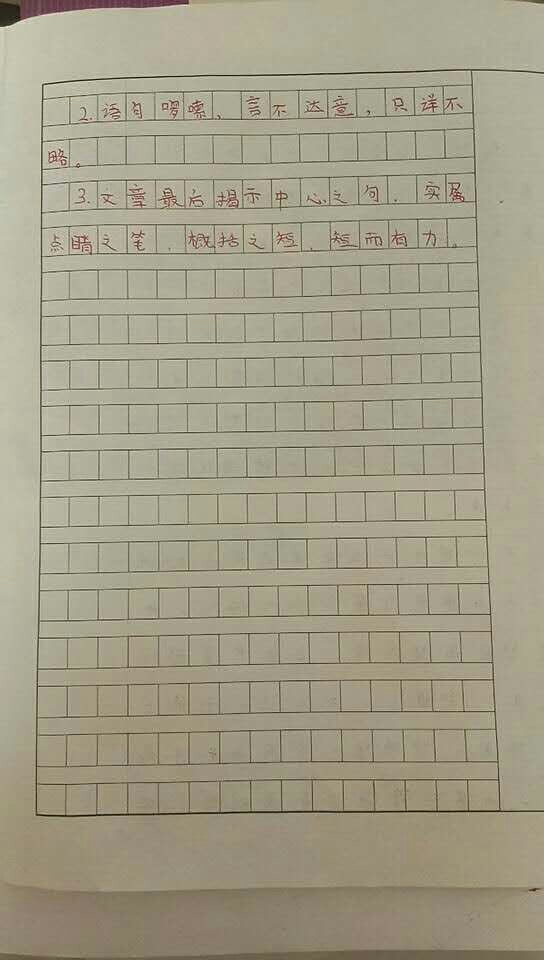 2.语句啰嗦，言不达意，只详不
略。
3.文章最后揭示中心之句，实属
点睛之笔，概括之短，短而有力。